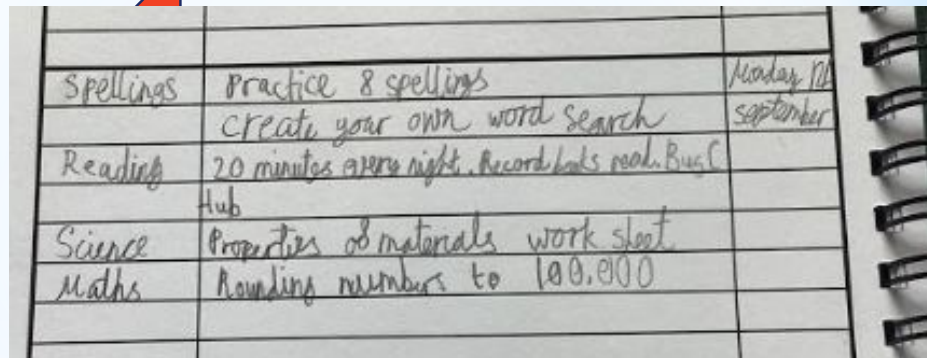 Spellings Practice 8 spellings Monday
create your own word search september
Reading 20 minutes every night. Record books read. Bug C
Hub
Science Properties of materials work sheet
Maths Rounding numbers to 100,000